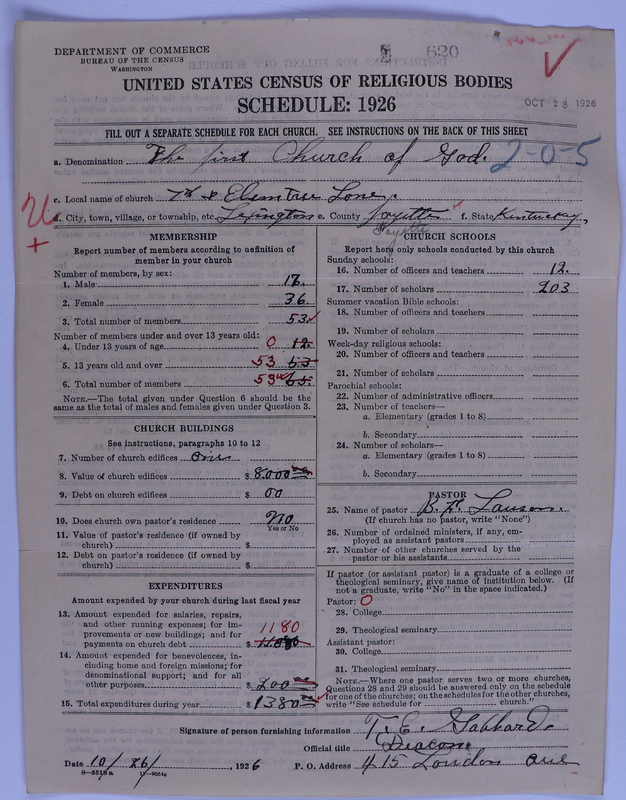 DEPARTMENT OF COMMERCE
BUREAU OF THE CENSUS
WASHINGTON
620
UNITED STATES CENSUS OF RELIGIOUS BODIES
SCHEDULE: 1926
OCT 28 1926
FILL OUT A SEPARATE SCHEDULE FOR EACH CHURCH. SEE INSTRUCTIONS ON THE BACK OF THIS SHEET
a. Denomination The first Church of God. 2-0-5
c. Local name of church 7th &
d. City, town, village, or township, etc. Lexington e. County Fayette f. State Kentucky,
Fayette
MEMBERSHIP
Report number of members according to definition of
member in your church
Number of members, by sex:
1. Male 17.
2. Female 36.
3. Total number of members 53
Number of members under and over 13 years old:
4. Under 13 years of age 0 12
5. 13 years old and over 53 53
6. Total number of members 53 65
NOTE.—The total given under Question 6 should be
same as the total of males and females given under Question 3.
CHURCH BUILDINGS
See instructions, paragraphs 10 to 12
7. Number of church edifices One
8. Value of church edifices $ 8000 00
9. Debt on church edifices $ 00
10. Does church own pastor's residence No
Yes or No
11. Value of pastor's residence (if owned by
church) $
12. Debt on pastor's residence (if owned by
church) $
EXPENDITURES
Amount expended by your church during last fiscal year
13. Amount expended for salaries, repairs,
and other running expenses; for im-
provements or new buildings; and for
payments on church debt $ 1180
14. Amount expended for benevolences, in-
cluding home and foreign missions; for
denominational support; and for all
other purposes $ 200 00
15. Total expenditures during year $ 1380 00
CHURCH SCHOOLS
Report here only schools conducted by this church
Sunday schools:
16. Number of officers and teachers 12.
17. Number of scholars 203
Summer vacation Bible schools:
18. Number of officers and teachers
19. Number of scholars
Week-day religious schools:
20. Number of officers and teachers
21. Number of scholars
Parochial schools:
22. Number of administrative officers
23. Number of teachers—
a. Elementary (grades 1 to 8)
b. Secondary
24. Number of scholars—
a. Elementary (grades 1 to 8)
b. Secondary
PASTOR
25. Name of pastor B. F. Lawson.
(If church has no pastor, write "None")
26. Number of ordained ministers, if any, em-
ployed as assistant pastors
27. Number of other churches served by the
pastor or his assistants
If pastor (or assistant pastor) is a graduate of a college or
theological seminary, give name of institution below. (If
not a graduate, write "No" in the space indicated.)
Pastor: O
28. College
29. Theological seminary
Assistant pastor:
30. College
31. Theological seminary
NOTE.—Where one pastor serves two or more churches,
Questions 28 and 29 should be answered only on the schedule
for one of the churches; on the schedules for the other churches,
write "See schedule for church."
Signature of person furnishing information T. E. Gabhard.
Official title Deacon
Date 10/26/, 1926 P. O. Address 415 London ave
8—5518a